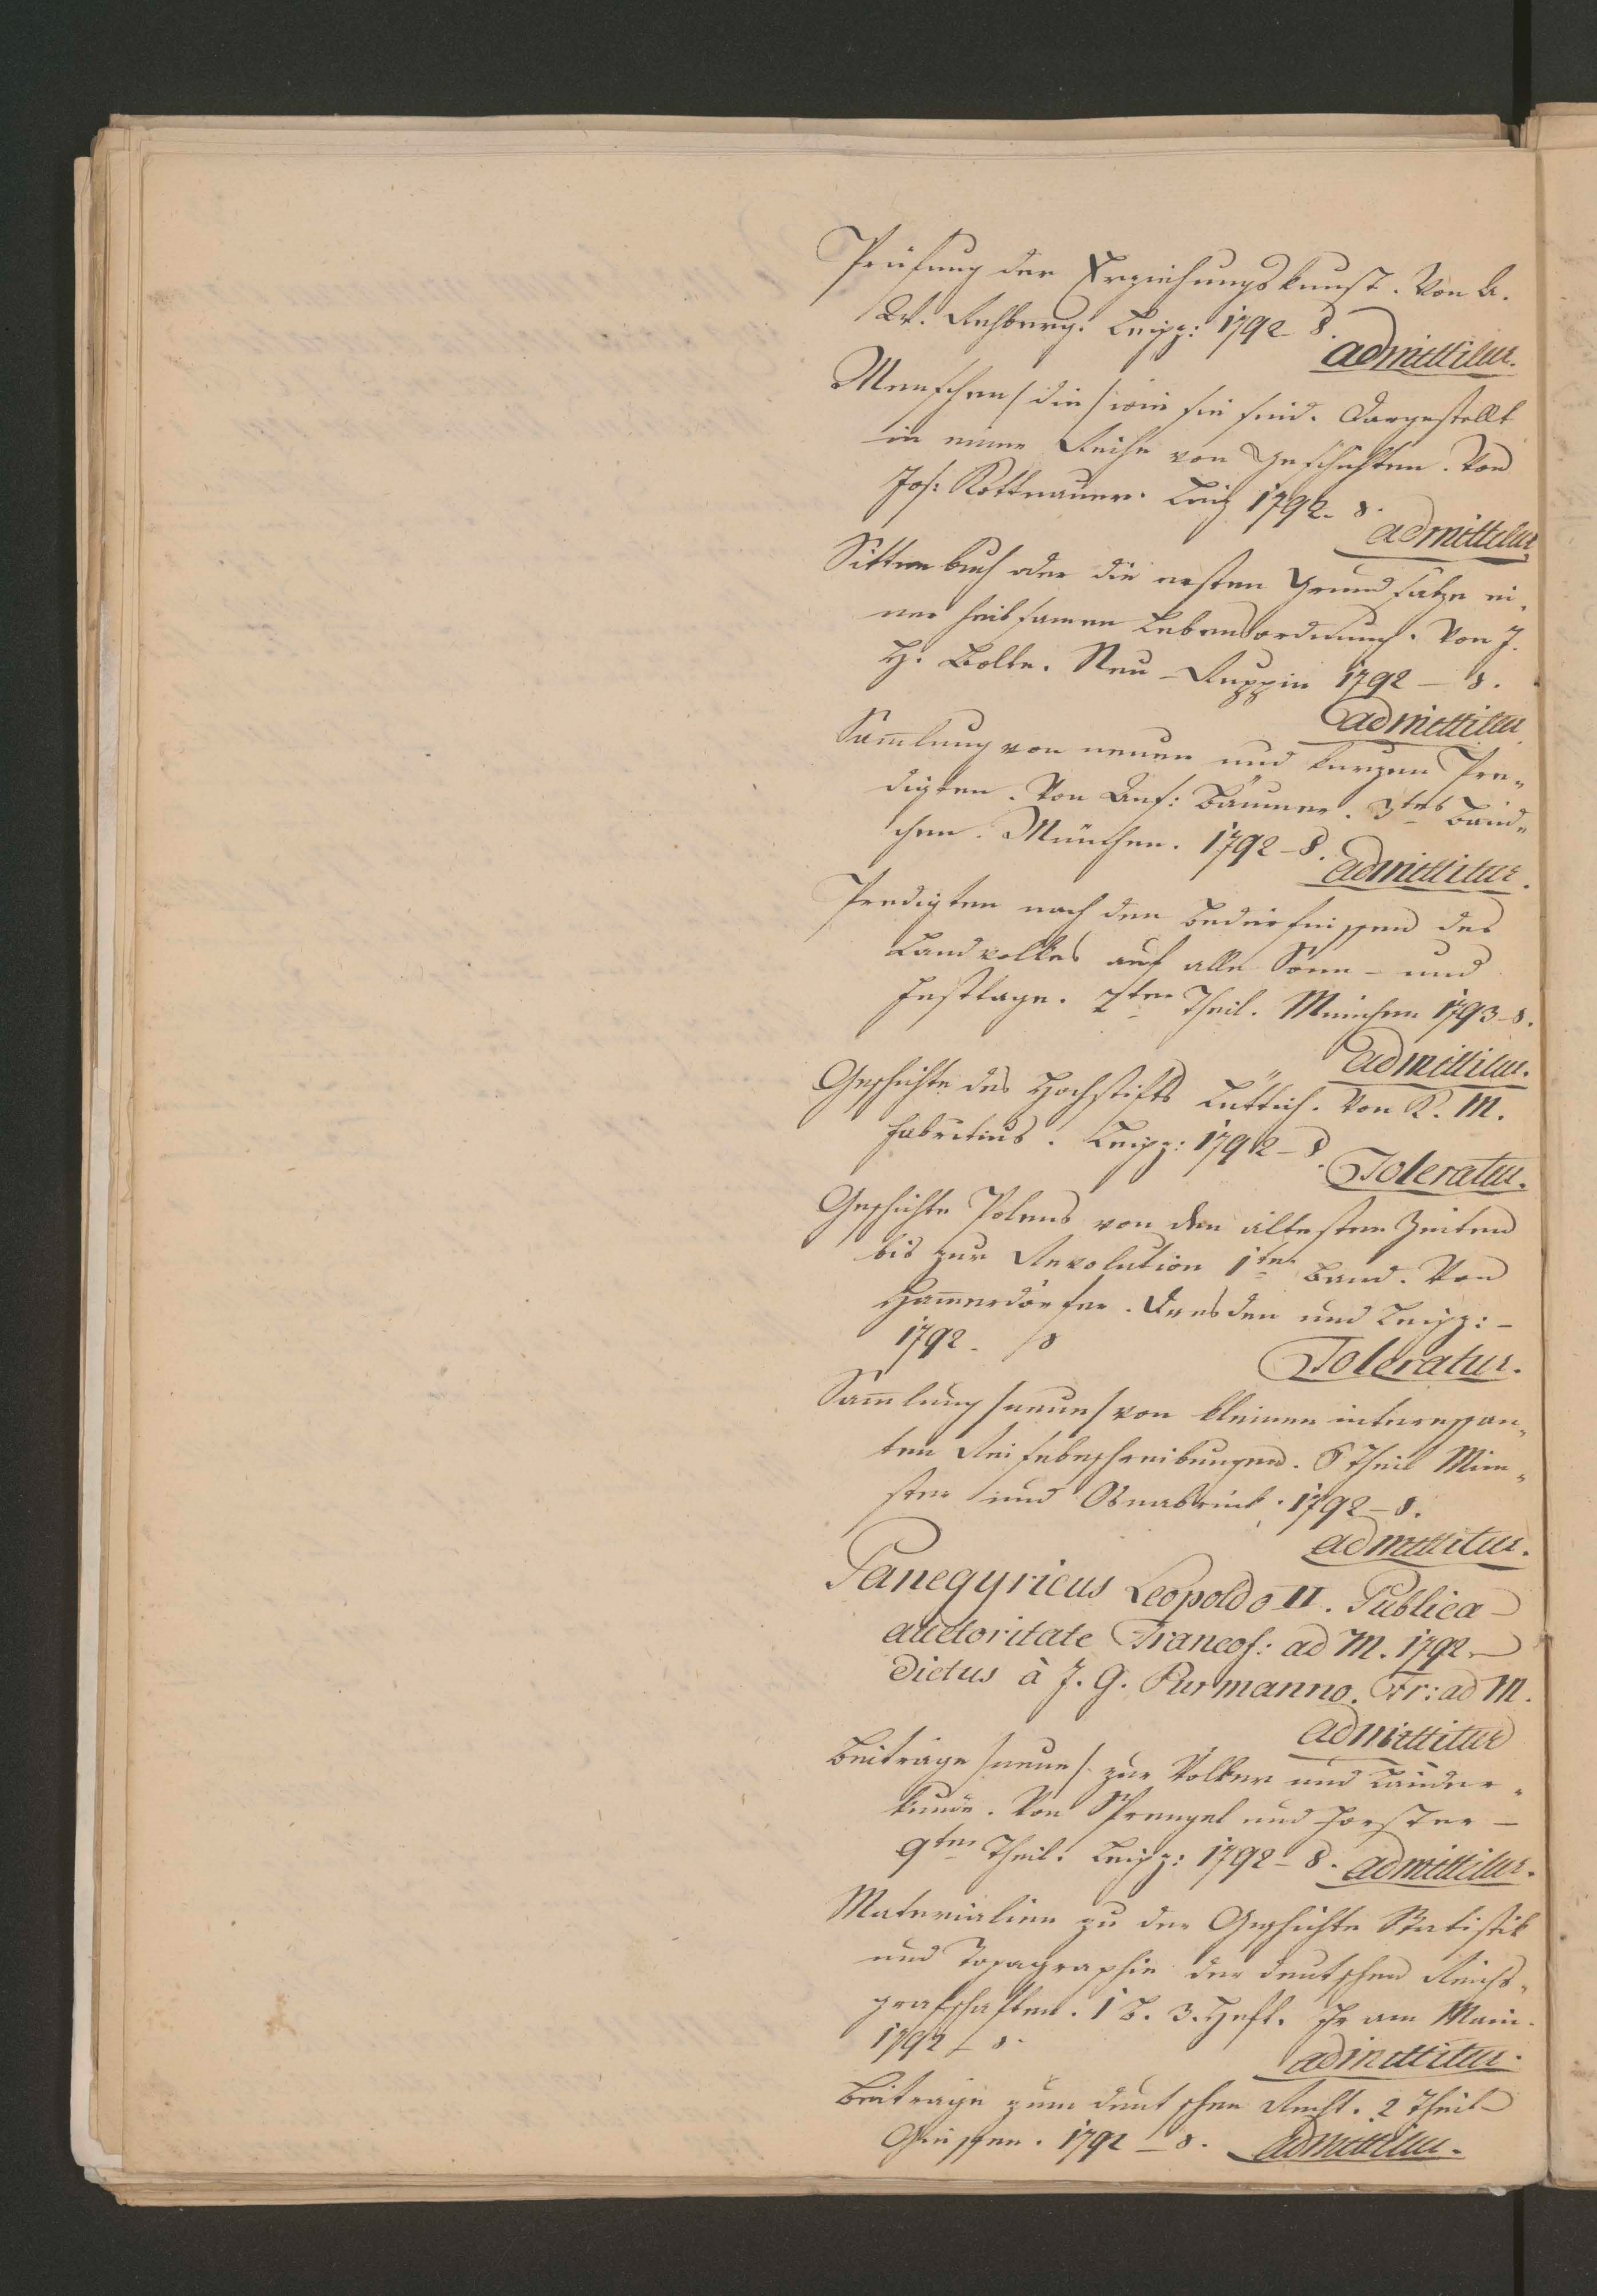 Prüfung der Erziehungskunst. Von A.
W. Rehberg. Leipz: 1792 8.
admittitur.
Menschen /die/ wie sie sind. Dargestellt
in einer Reihe von Geschichten. Von
Jos: Rottnauer. Linz 1792. 8.
admittitur
Sittenbuch oder die ersten Grundsätze ei-
ner heilsamen Lebensordnung. Von J.
H. Bolte. Neu-Ruppin 1792 – 8.
admittitur
Sam̄lung von neuen und kurzen Pre-
digten. Von Ans: Bäumer. 3tes Bänd-
chen. München. 1792 – 8.
admittitur.
Predigten nach den Bedürfnissen des
Landvolkes auf alle Sonn- und
Festtage. 2ter Theil. München 1793 – 8.
admittitur.
Geschichte des Hochstifts Lüttich. Von K. M.
Fabritius. Leipz: 1792 – 8.
Toleratur.
Geschichte Polens von den ältesten Zeiten
bis zur Revolution 1ter Band. Von
Ham̄erdörfer. Dresden und Leipz: –
1792. 8
Toleratur.
Sam̄lung /neue/ von kleinen interessan-
ten Reisebeschreibungen. 6 Theil Mün-
ster und Osnabrück. 1792 – 8.
admittitur.
Panegyricus Leopoldo II. Publica
auctoritate Francof: ad M. 1792
dictus à J. G. Purmanno. Fr: ad M.
admittitur
Beiträge /neue/ zur Völker und Länder-
kunde. Von Sprengel und Forster –
9ter Theil. Leipz: 1792 – 8. admittitur.
Materialien zu der Geschichte Statistik
und Topagraphie der deutschen Reichs-
grafschaften. 1 B. 3. Heft. Fr am Main.
1792 – 8.
admittitur.
Beiträge zum deutschen Recht. 2 Theil
Giessen. 1792 – 8. admittitur.